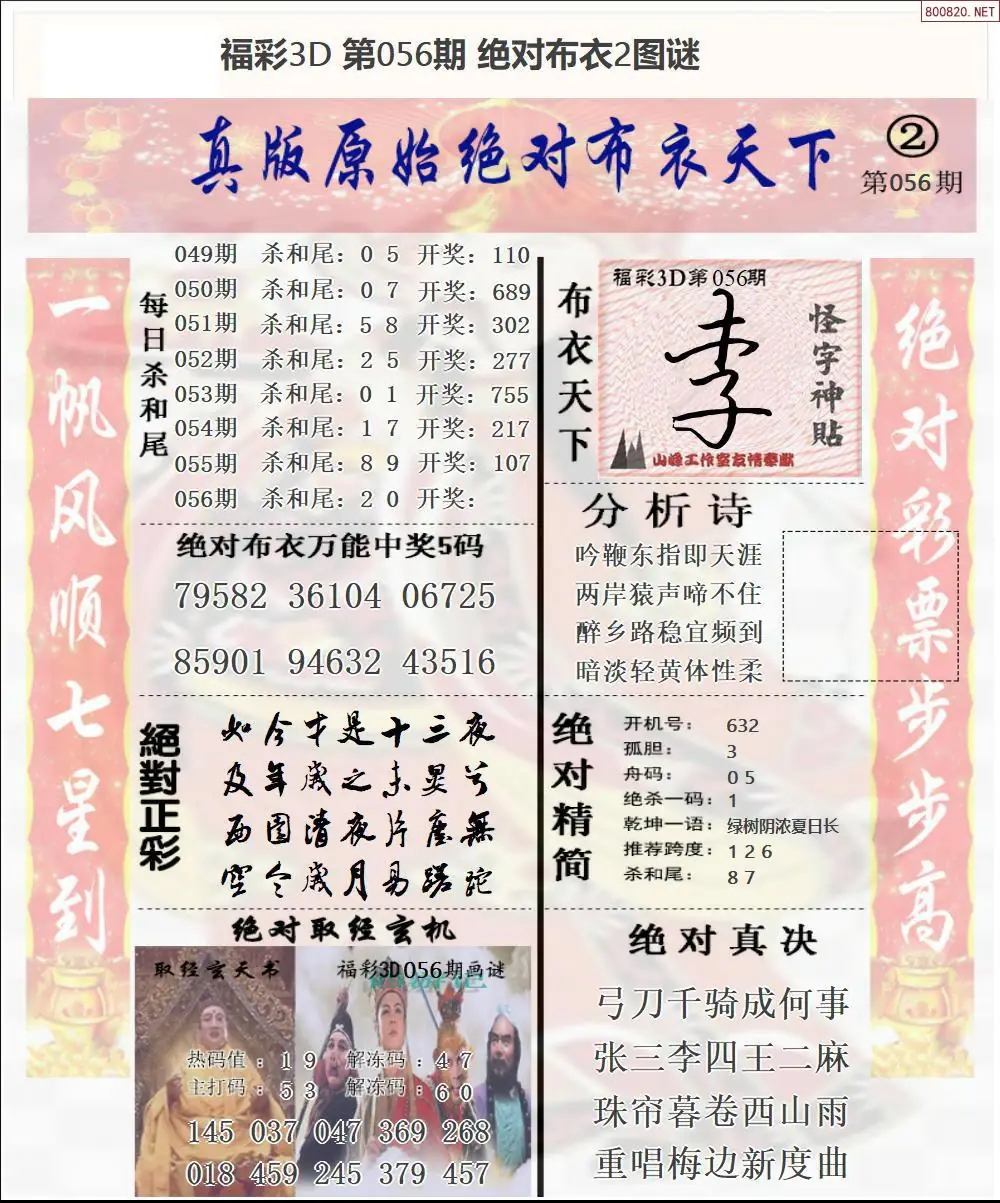 800820.NET
福彩3D 第056期 绝对布衣2图谜
真版原始绝对布衣天下
②
第056期
一帆风顺七星到
每日杀和尾
049期 杀和尾：0 5 开奖：110
050期 杀和尾：0 7 开奖：689
051期 杀和尾：5 8 开奖：302
052期 杀和尾：2 5 开奖：277
053期 杀和尾：0 1 开奖：755
054期 杀和尾：1 7 开奖：217
055期 杀和尾：8 9 开奖：107
056期 杀和尾：2 0 开奖：
绝对布衣万能中奖5码
79582 36104 06725
85901 94632 43516
絕對正彩
如今才是十三夜
及年歲之未晏兮
西園清夜片塵無
空令歲月易蹉跎
绝对取经玄机
取经玄天书
福彩3D056期画谜
热码值：1 9 解冻码：4 7
主打码：5 3 解冻码：6 0
145 037 047 369 268
018 459 245 379 457
布衣天下
福彩3D第056期
李
怪字神貼
山峰工作室友情奉献
分析诗
吟鞭东指即天涯
两岸猿声啼不住
醉乡路稳宜频到
暗淡轻黄体性柔
绝对精简
开机号：632
孤胆：3
舟码：0 5
绝杀一码：1
乾坤一语：绿树阴浓夏日长
推荐跨度：1 2 6
杀和尾：8 7
绝对真决
弓刀千骑成何事
张三李四王二麻
珠帘暮卷西山雨
重唱梅边新度曲
绝对彩票步步高